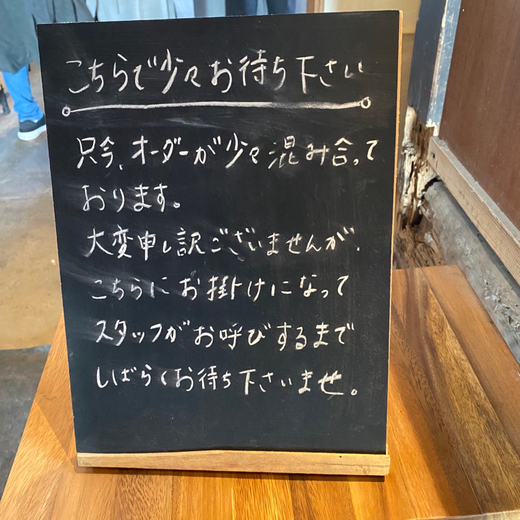 こちらで少々お待ち下さい
只今、オーダーが少々混み合って
おります。
大変申し訳ございませんが、
こちらにお掛けになって
スタッフがお呼びするまで
しばらくお待ち下さいませ。